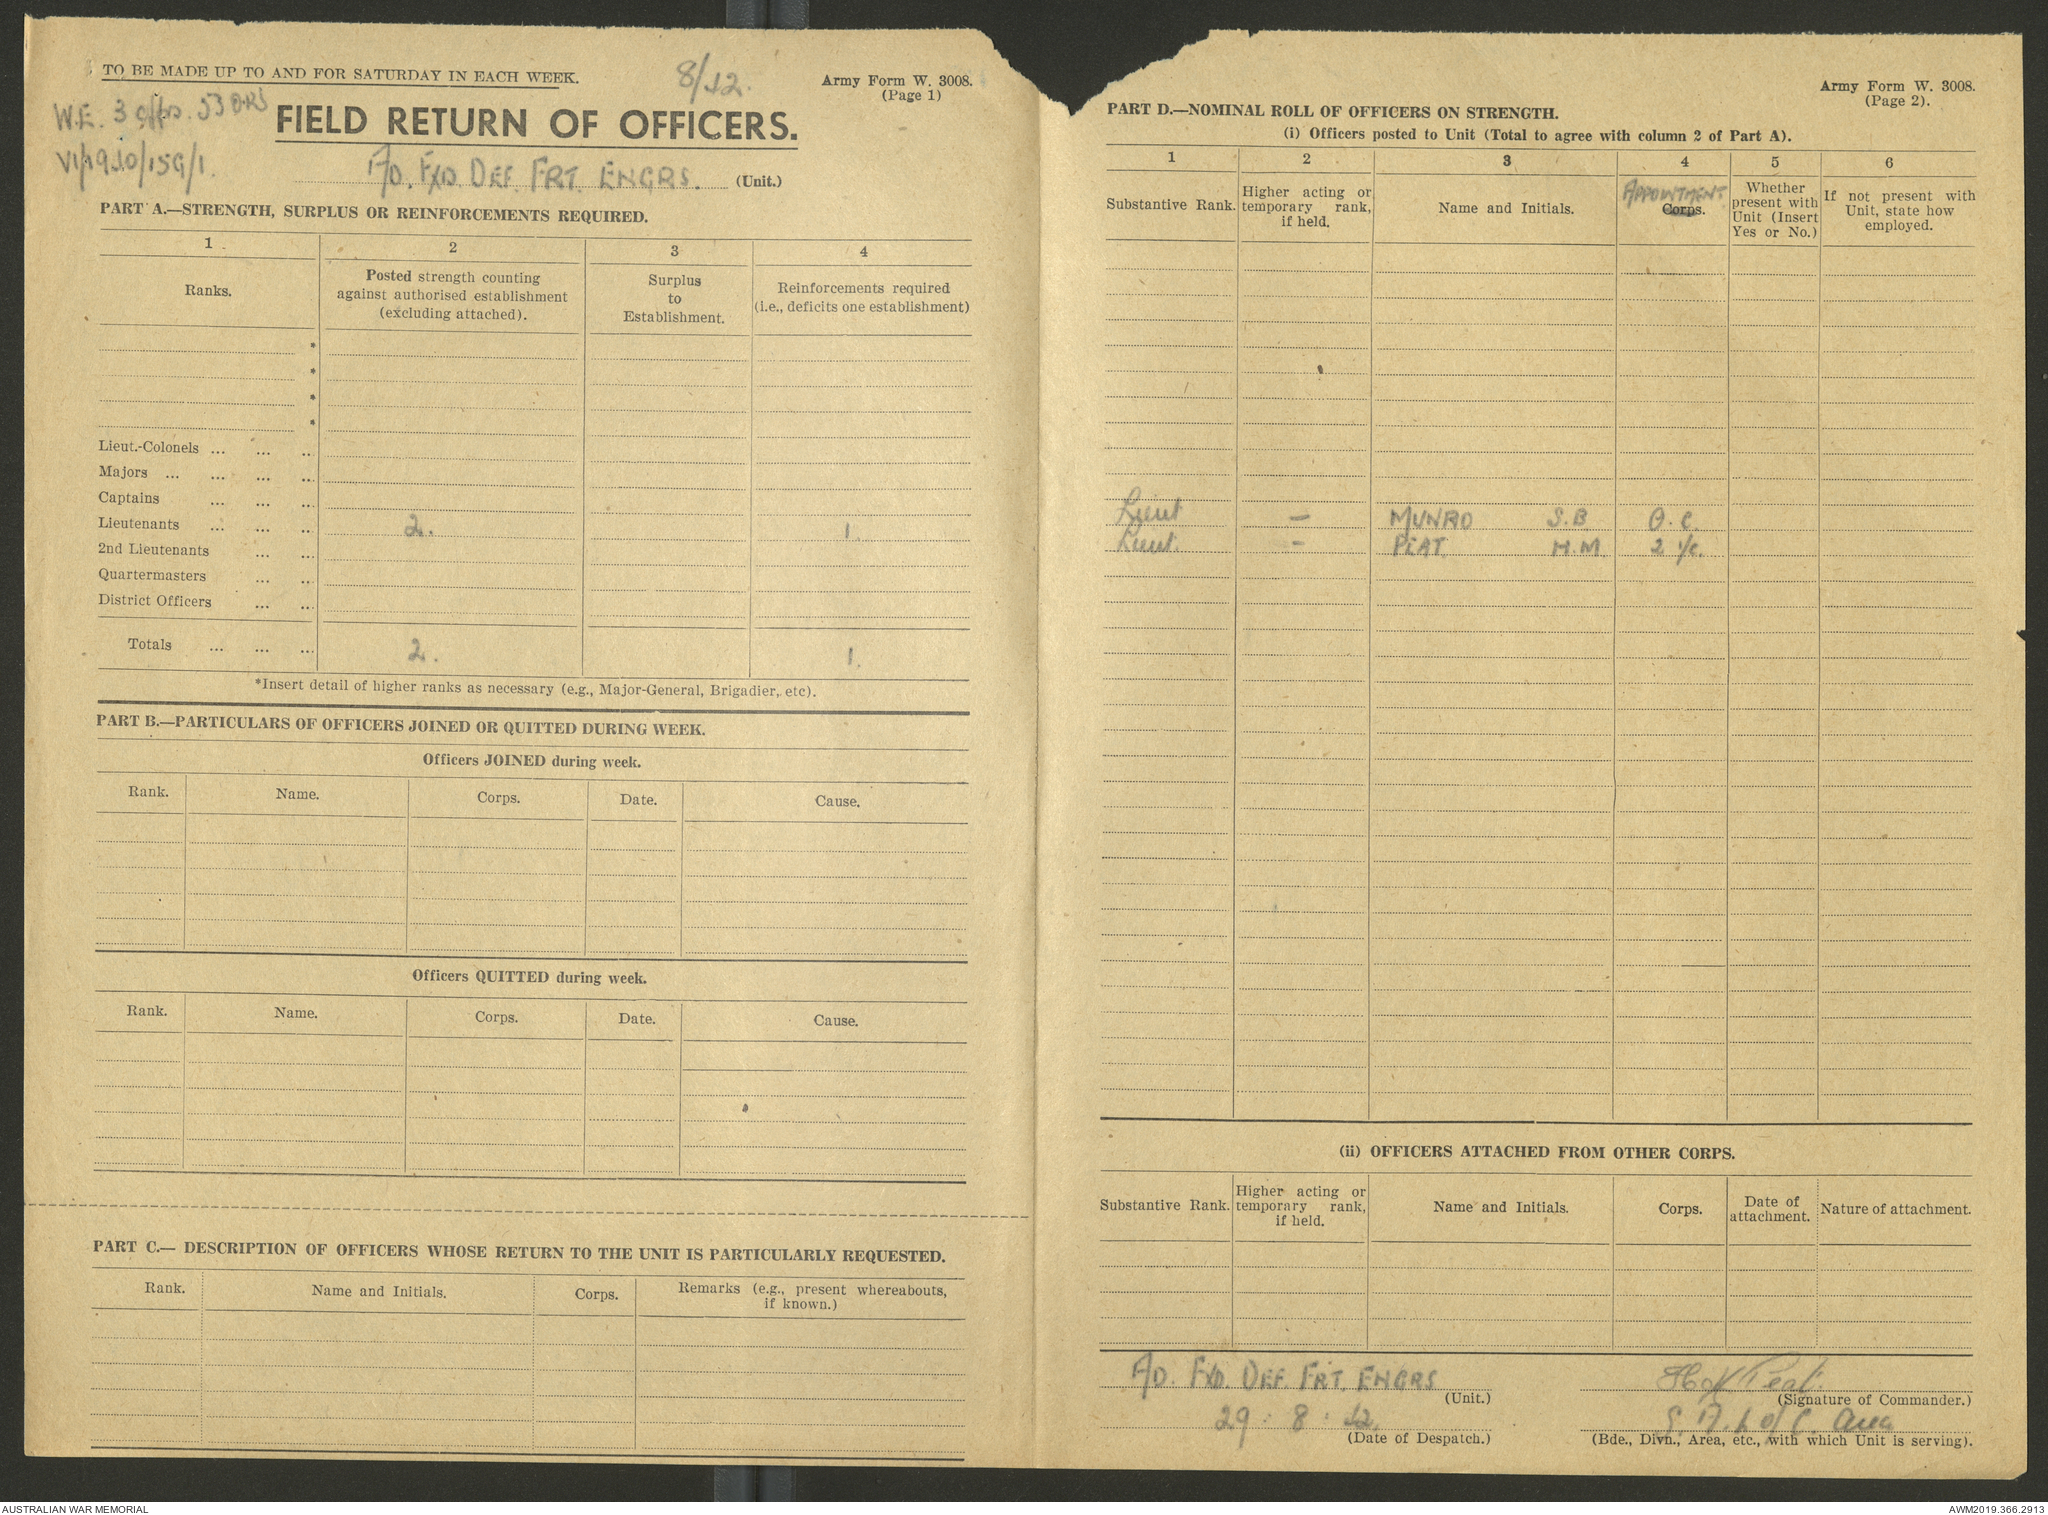 TO BE MADE UP TO AND FOR SATURDAY IN EACH WEEK.
8/42.
Army Form W. 3008.
(Page 1)
W.E. 3 offrs. 53 ORS
FIELD RETURN OF OFFICERS.
F/D. FXD. DEF. FRT. ENGRS. (Unit.)
PART A.—STRENGTH, SURPLUS OR REINFORCEMENTS REQUIRED.
1 2 3 4
Ranks.
Posted strength counting
against authorised establishment
(excluding attached).
Surplus
to
Establishment.
Reinforcements required
(i.e., deficits one establishment)
*
*
*
*
Lieut.-Colonels ... ... ...
Majors ... ... ... ...
Captains ... ... ...
Lieutenants ... ... ... 2. 1.
2nd Lieutenants ... ...
Quartermasters ... ...
District Officers ... ...
Totals ... ... ... 2. 1.
*Insert detail of higher ranks as necessary (e.g., Major-General, Brigadier, etc).
PART B.—PARTICULARS OF OFFICERS JOINED OR QUITTED DURING WEEK.
Officers JOINED during week.
Rank. Name. Corps. Date. Cause.
Officers QUITTED during week.
Rank. Name. Corps. Date. Cause.
PART C.— DESCRIPTION OF OFFICERS WHOSE RETURN TO THE UNIT IS PARTICULARLY REQUESTED.
Rank. Name and Initials. Corps. Remarks (e.g., present whereabouts,
if known.)
Army Form W. 3008.
(Page 2).
PART D.—NOMINAL ROLL OF OFFICERS ON STRENGTH.
(i) Officers posted to Unit (Total to agree with column 2 of Part A).
1 2 3 4 5 6
Substantive Rank.
Higher acting or
temporary rank,
if held.
Name and Initials.
APPOINTMENT
Corps.
Whether
present with
Unit (Insert
Yes or No.)
If not present with
Unit, state how
employed.
Lieut – MUNRO S.B O.C.
Lieut. – PEAT H.M 2 i/c.
(ii) OFFICERS ATTACHED FROM OTHER CORPS.
Substantive Rank.
Higher acting or
temporary rank,
if held.
Name and Initials.
Corps.
Date of
attachment.
Nature of attachment.
F/D. FXD. DEF. FRT. ENGRS (Unit.)
29 : 8 : 42. (Date of Despatch.)
Peat. (Signature of Commander.)
L of C. Area
(Bde., Divn., Area, etc., with which Unit is serving).
AUSTRALIAN WAR MEMORIAL
AWM2019.366.2913